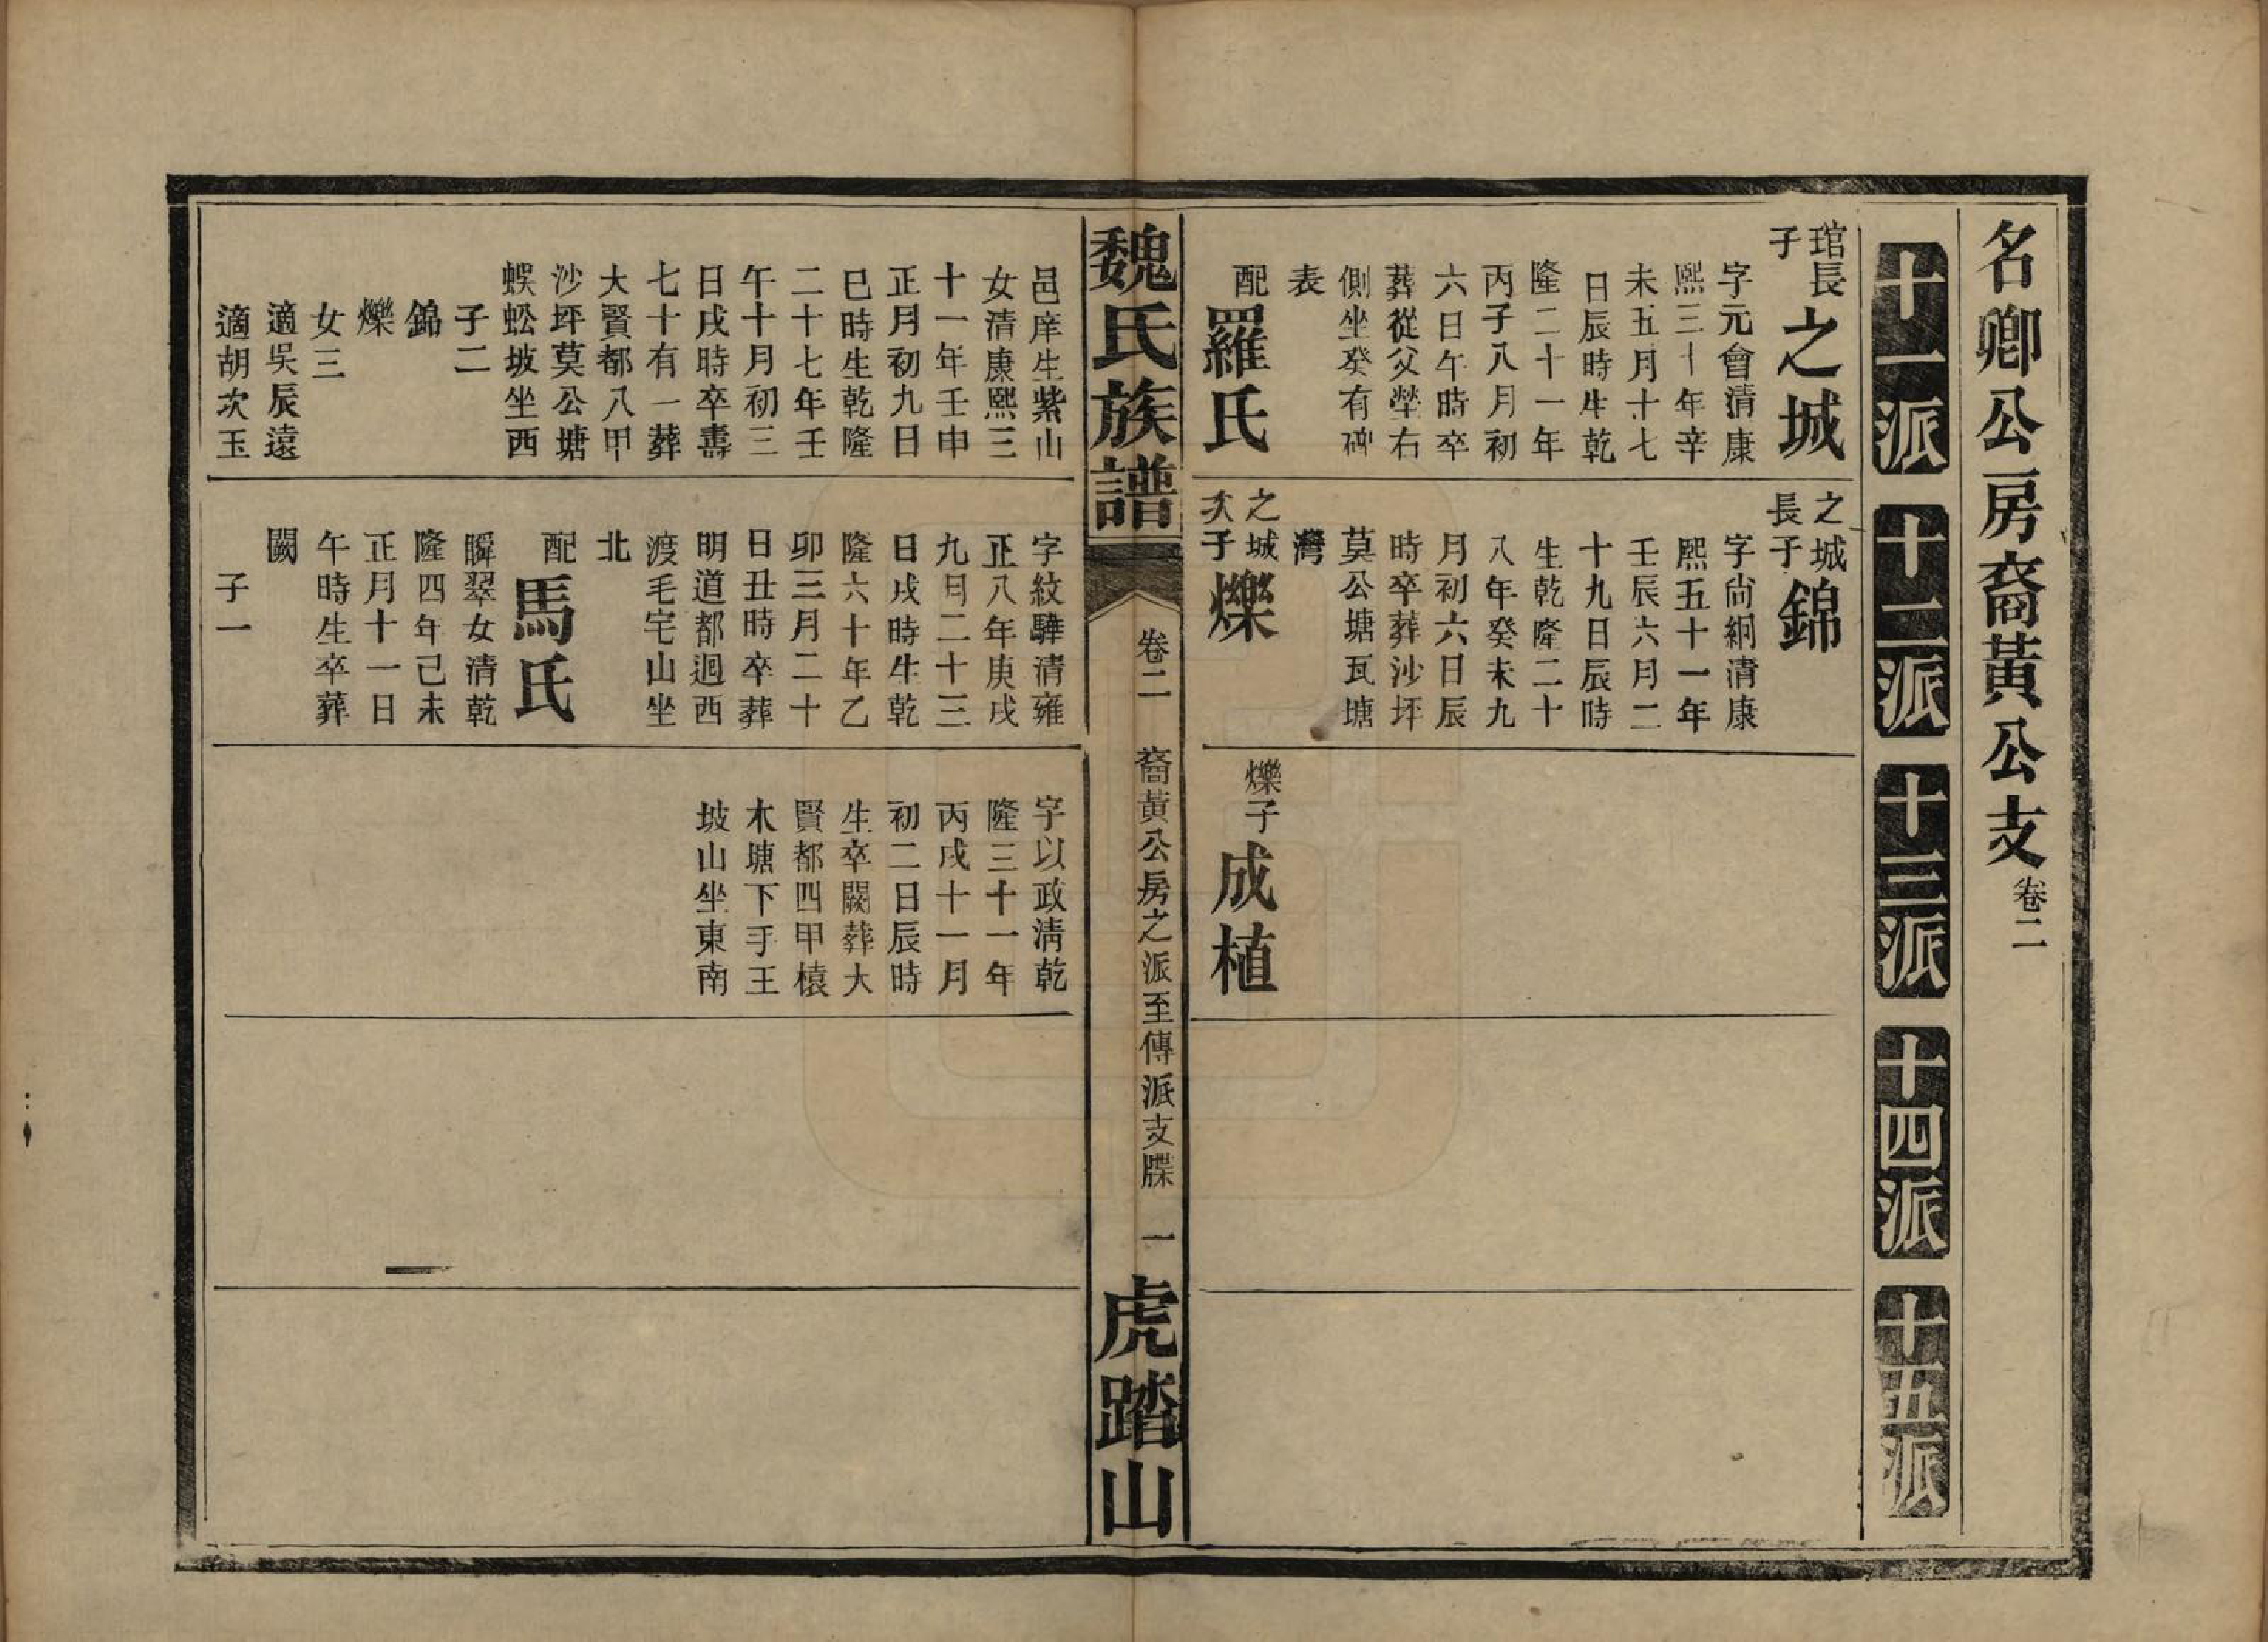 名卿公房裔黃公支卷二
十一派
十二派
十三派
十四派
十五派
琯長子之城
字元會清康
熙三十年辛
未五月十七
日辰時生乾
隆二十一年
丙子八月初
六日午時卒
葬從父塋右
側坐癸有碑
表
配羅氏
之城長子錦
字尙絅清康
熙五十一年
壬辰六月二
十九日辰時
生乾隆二十
八年癸未九
月初六日辰
時卒葬沙坪
莫公塘瓦塘
灣
之城次子爍
爍子成植
魏氏族譜
卷二
裔黃公房之派至傳派支牒
一
虎踏山
邑庠生紫山
女清康熙三
十一年壬申
正月初九日
巳時生乾隆
二十七年壬
午十月初三
日戌時卒壽
七十有一葬
大賢都八甲
沙坪莫公塘
蜈蚣坡坐西
子二
錦
爍
女三
適吳辰遠
適胡次玉
字紋驊清雍
正八年庚戌
九月二十三
日戌時生乾
隆六十年乙
卯三月二十
日丑時卒葬
明道都迴西
渡毛宅山坐
北
配馬氏
瞬翠女清乾
隆四年己未
正月十一日
午時生卒葬
闕
子一
字以政清乾
隆三十一年
丙戌十一月
初二日辰時
生卒闕葬大
賢都四甲榬
木塘下于王
坡山坐東南